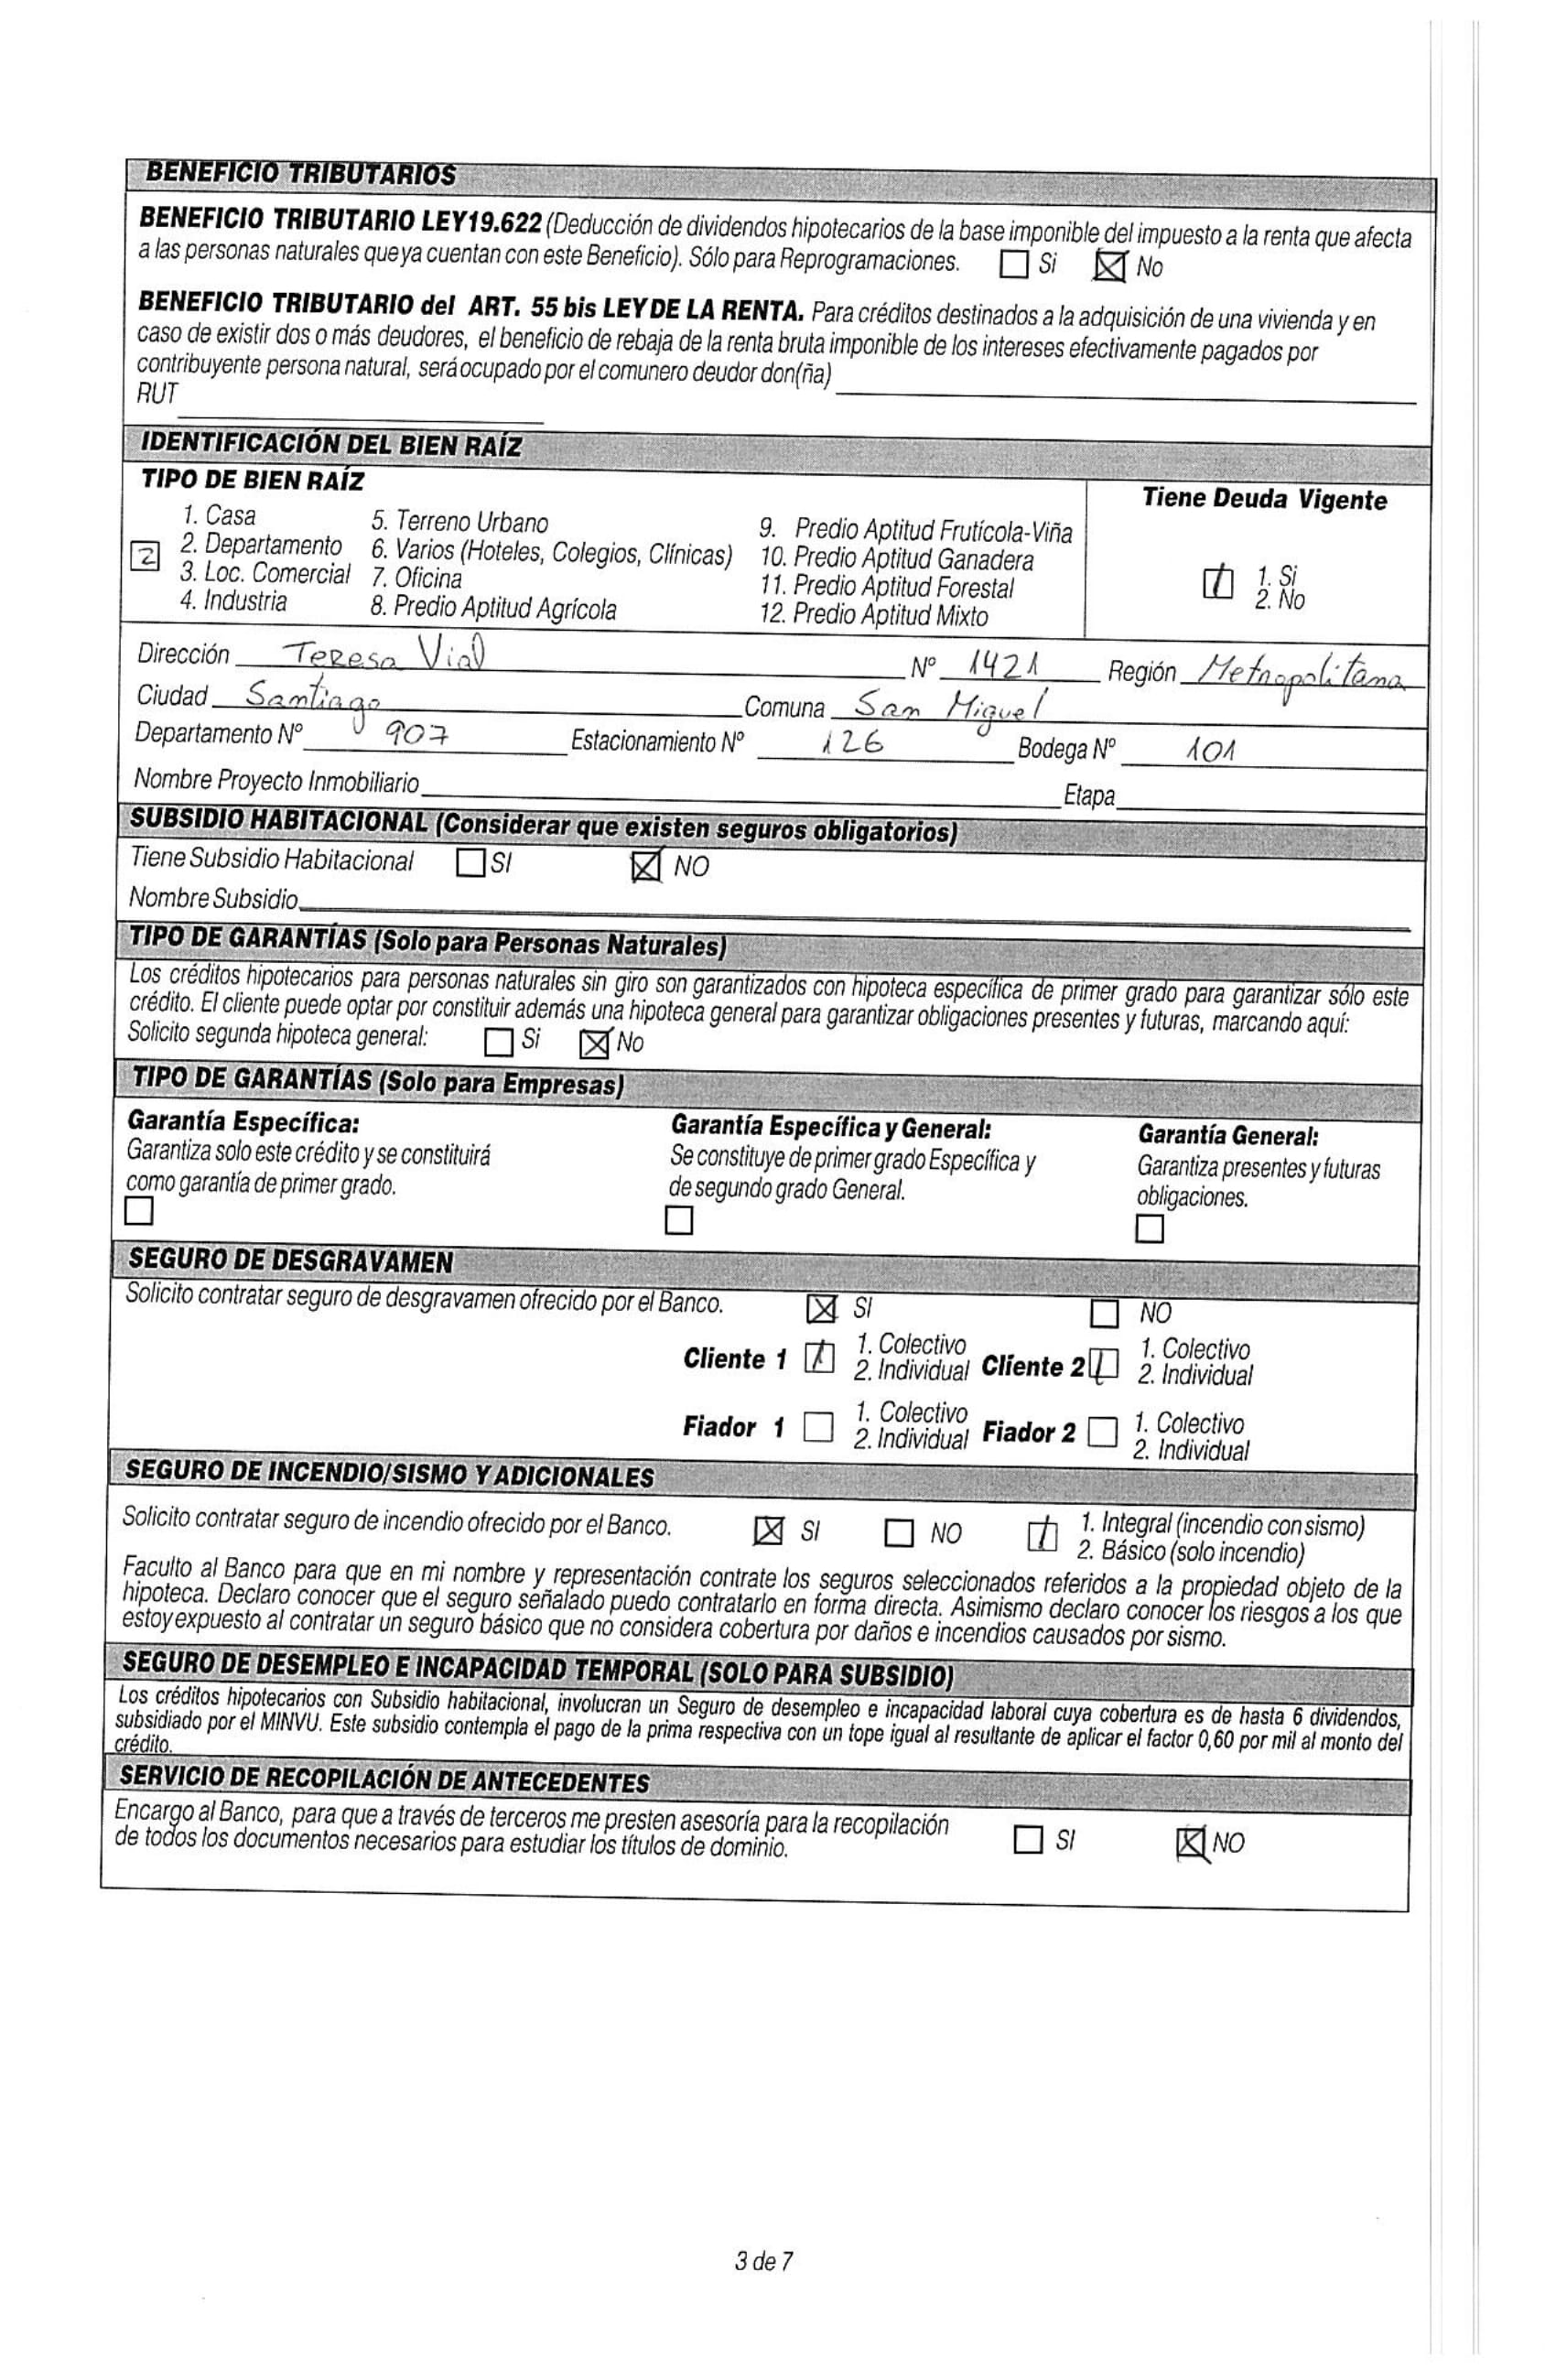 BENEFICIO TRIBUTARIOS
BENEFICIO TRIBUTARIO LEY19.622 (Deducción de dividendos hipotecarios de la base imponible del impuesto a la renta que afecta
a las personas naturales que ya cuentan con este Beneficio). Sólo para Reprogramaciones. ☐ Si ☒ No
BENEFICIO TRIBUTARIO del ART. 55 bis LEY DE LA RENTA. Para créditos destinados a la adquisición de una vivienda y en
caso de existir dos o más deudores, el beneficio de rebaja de la renta bruta imponible de los intereses efectivamente pagados por
contribuyente persona natural, será ocupado por el comunero deudor don(ña)
RUT
IDENTIFICACIÓN DEL BIEN RAÍZ
TIPO DE BIEN RAÍZ
Tiene Deuda Vigente
1. Casa 5. Terreno Urbano 9. Predio Aptitud Frutícola-Viña
2 2. Departamento 6. Varios (Hoteles, Colegios, Clínicas) 10. Predio Aptitud Ganadera
3. Loc. Comercial 7. Oficina 11. Predio Aptitud Forestal
4. Industria 8. Predio Aptitud Agrícola 12. Predio Aptitud Mixto
1 1. Si
2. No
Dirección Teresa Vial Nº 1421 Región Metropolitana
Ciudad Santiago Comuna San Miguel
Departamento Nº 907 Estacionamiento Nº 126 Bodega Nº 101
Nombre Proyecto Inmobiliario Etapa
SUBSIDIO HABITACIONAL (Considerar que existen seguros obligatorios)
Tiene Subsidio Habitacional ☐ SI ☒ NO
Nombre Subsidio
TIPO DE GARANTÍAS (Solo para Personas Naturales)
Los créditos hipotecarios para personas naturales sin giro son garantizados con hipoteca específica de primer grado para garantizar sólo este
crédito. El cliente puede optar por constituir además una hipoteca general para garantizar obligaciones presentes y futuras, marcando aquí:
Solicito segunda hipoteca general: ☐ Si ☒ No
TIPO DE GARANTÍAS (Solo para Empresas)
Garantía Específica: Garantía Específica y General: Garantía General:
Garantiza solo este crédito y se constituirá Se constituye de primer grado Específica y Garantiza presentes y futuras
como garantía de primer grado. de segundo grado General. obligaciones.
☐ ☐ ☐
SEGURO DE DESGRAVAMEN
Solicito contratar seguro de desgravamen ofrecido por el Banco. ☒ SI ☐ NO
Cliente 1 1 1. Colectivo Cliente 2 1 1. Colectivo
2. Individual 2. Individual
Fiador 1 ☐ 1. Colectivo Fiador 2 ☐ 1. Colectivo
2. Individual 2. Individual
SEGURO DE INCENDIO/SISMO Y ADICIONALES
Solicito contratar seguro de incendio ofrecido por el Banco. ☒ SI ☐ NO 1 1. Integral (incendio con sismo)
2. Básico (solo incendio)
Faculto al Banco para que en mi nombre y representación contrate los seguros seleccionados referidos a la propiedad objeto de la
hipoteca. Declaro conocer que el seguro señalado puedo contratarlo en forma directa. Asimismo declaro conocer los riesgos a los que
estoy expuesto al contratar un seguro básico que no considera cobertura por daños e incendios causados por sismo.
SEGURO DE DESEMPLEO E INCAPACIDAD TEMPORAL (SOLO PARA SUBSIDIO)
Los créditos hipotecarios con Subsidio habitacional, involucran un Seguro de desempleo e incapacidad laboral cuya cobertura es de hasta 6 dividendos,
subsidiado por el MINVU. Este subsidio contempla el pago de la prima respectiva con un tope igual al resultante de aplicar el factor 0,60 por mil al monto del
crédito.
SERVICIO DE RECOPILACIÓN DE ANTECEDENTES
Encargo al Banco, para que a través de terceros me presten asesoría para la recopilación
de todos los documentos necesarios para estudiar los títulos de dominio. ☐ SI ☒ NO
3 de 7